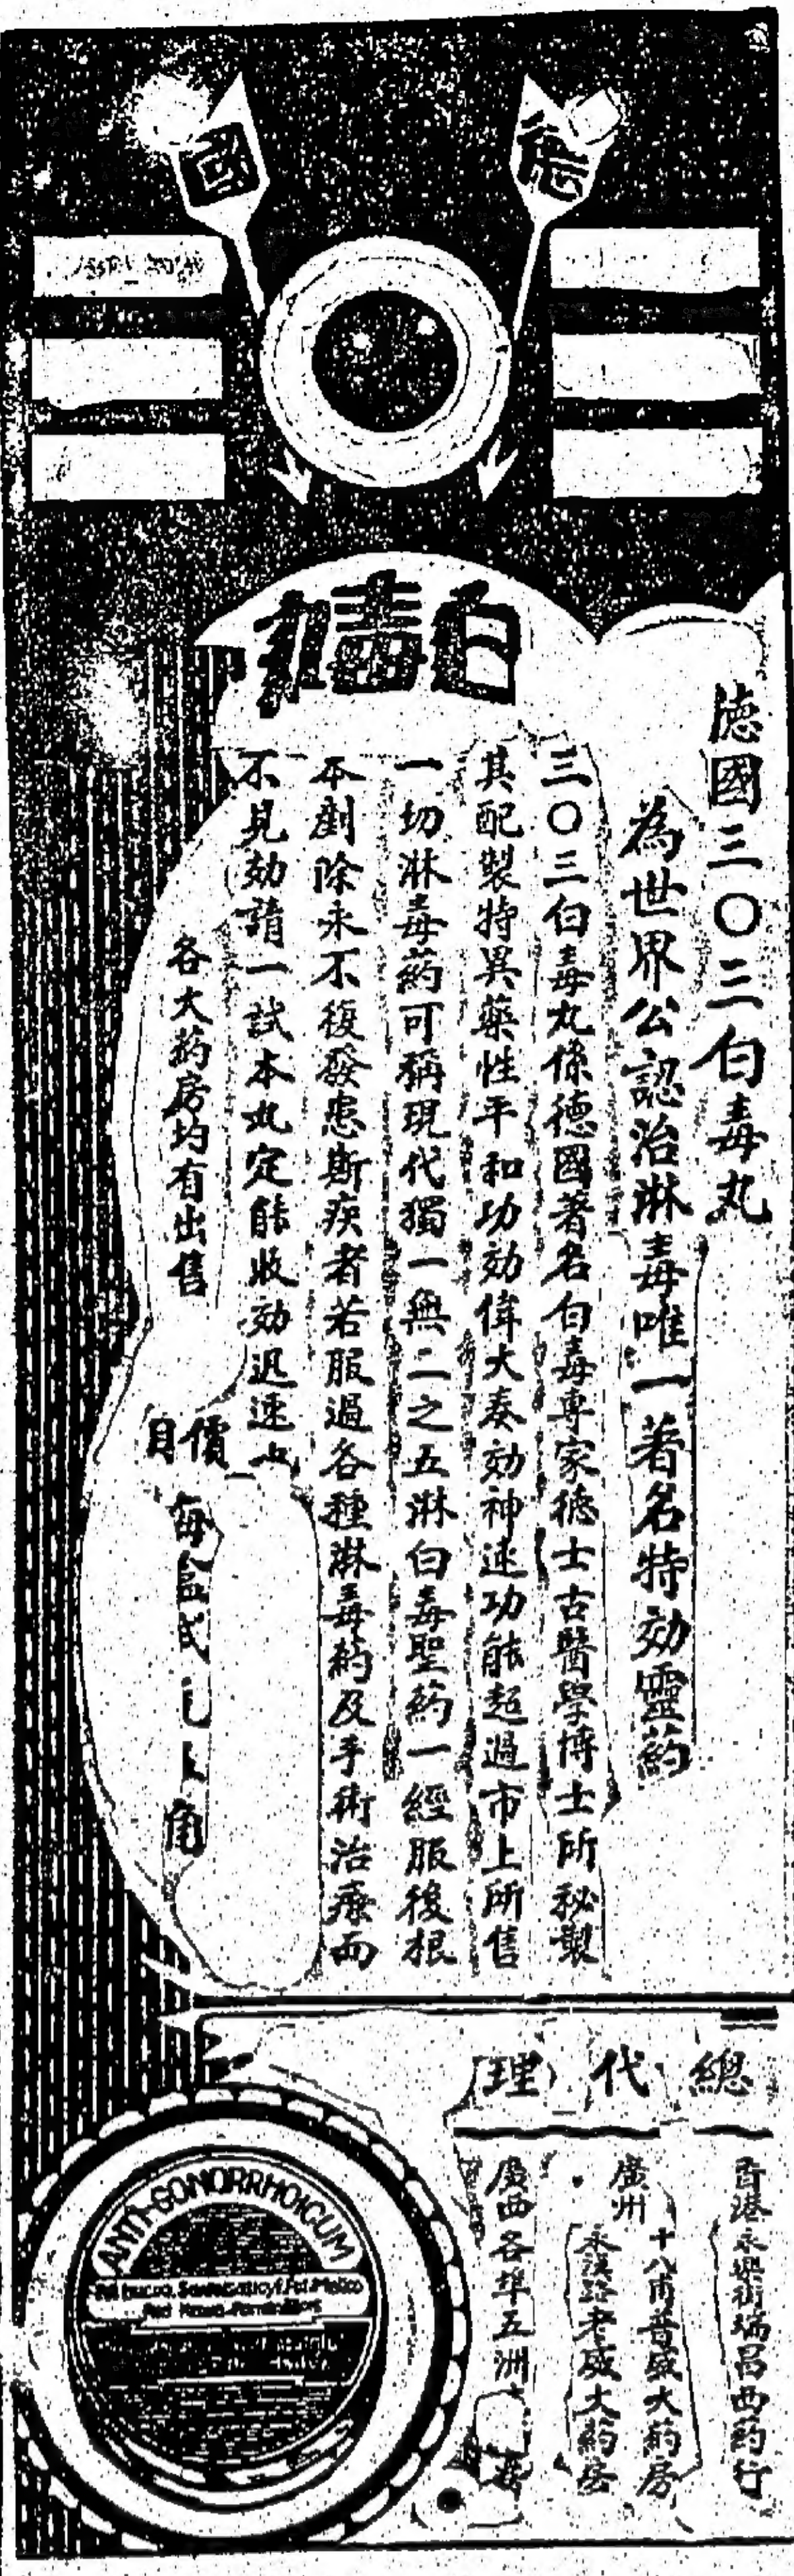 德國
三〇三
白毒丸
德國三〇三白毒丸
為世界公認治淋毒唯一著名特効靈葯
三〇三白毒丸係德國著名白毒專家德士古醫學博士所秘製
其配製特異藥性平和功効偉大奏効神速功能超過市上所售
一切淋毒葯可稱現代獨一無二之五淋白毒聖葯一經服後根
本剷除永不復發患斯疾者若服過各種淋毒葯及手術治療而
不見効請一試本丸定能收効迅速也
各大葯房均有出售
價目
每盒
角
總代理
香港永樂街瑞昌西葯行
廣州
十八甫普威大葯房
永漢路老威大葯房
廣西各埠五洲
ANTI-GONORRHOICUM